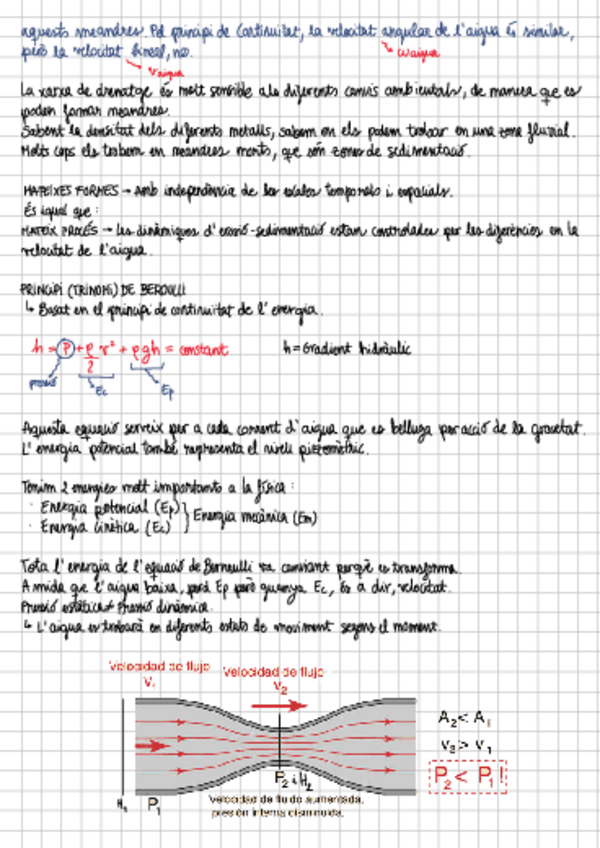 aquests meandres. Pel principi de Continuïtat, la velocitat angular de l'aigua és similar,
però la velocitat lineal, no.
ω aigua
v aigua
La xarxa de drenatge és molt sensible als diferents canvis ambientals, de manera que es
poden formar meandres.
Sabent la densitat dels diferents metalls, sabem on els podem trobar en una zona fluvial.
Molts cops els trobem en meandres morts, que són zones de sedimentació.
MATEIXES FORMES → Amb independència de les escales temporals i espacials.
És igual que:
MATEIX PROCÉS → Les dinàmiques d'erosió-sedimentació estan controlades per les diferències en la
velocitat de l'aigua.
PRINCIPI (TRINOMI) DE BEROULLI
↳ Basat en el principi de continuïtat de l'energia.
h = P + ρ/2 v² + ρgh = constant h = Gradient hidràulic
pressió Ec Ep
Aquesta equació serveix per a cada corrent d'aigua que es belluga per acció de la gravetat.
L'energia potencial també representa el nivell piezomètric.
Tenim 2 energies molt importants a la física:
· Energia potencial (Ep)
· Energia cinètica (Ec)
} Energia mecànica (Em)
Tota l'energia de l'equació de Bernoulli va canviant perquè es transforma.
A mida que l'aigua baixa, perd Ep però guanya Ec, és a dir, velocitat.
Pressió estàtica ≠ Pressió dinàmica.
↳ L'aigua es trobarà en diferents estats de moviment segons el moment.
Velocidad de flujo
V₁
Velocidad de flujo
V₂
A₂ < A₁
v₂ > v₁
P₂ < P₁ !
P₂ i H₂
H₁ P₁
Velocidad de fluido aumentada,
presión interna disminuida.